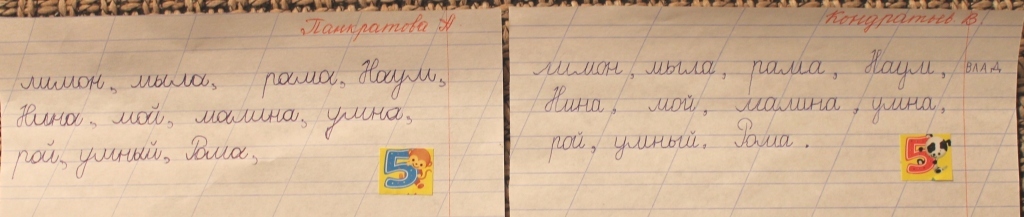 Панкратова А
лимон, мыла, рама, Наум,
Нина, мой, малина, умна,
рой, умный, Рома,
5
Кондратьев В.
лимон, мыла, рама, Наум, ВЛАД
Нина, мой, малина, умна,
рой, умный. Рома.
5